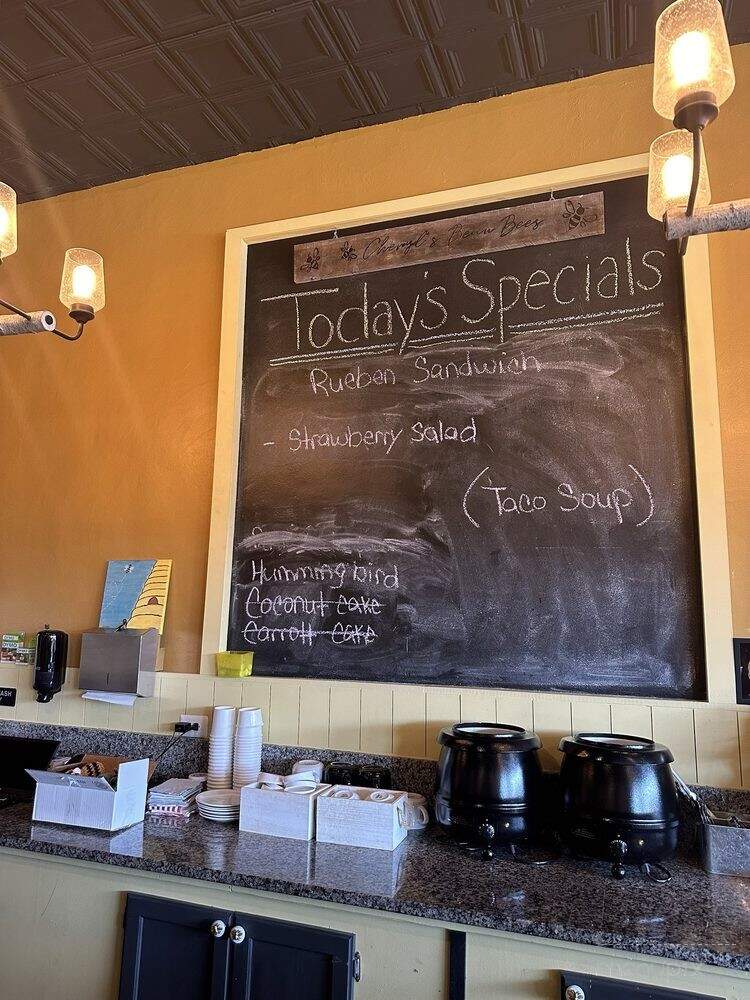 Cheryl's Beaw Bees
Today's Specials
Rueben Sandwich
- Strawberry Salad
(Taco Soup)
Hummingbird
Coconut cake
Carrott cake